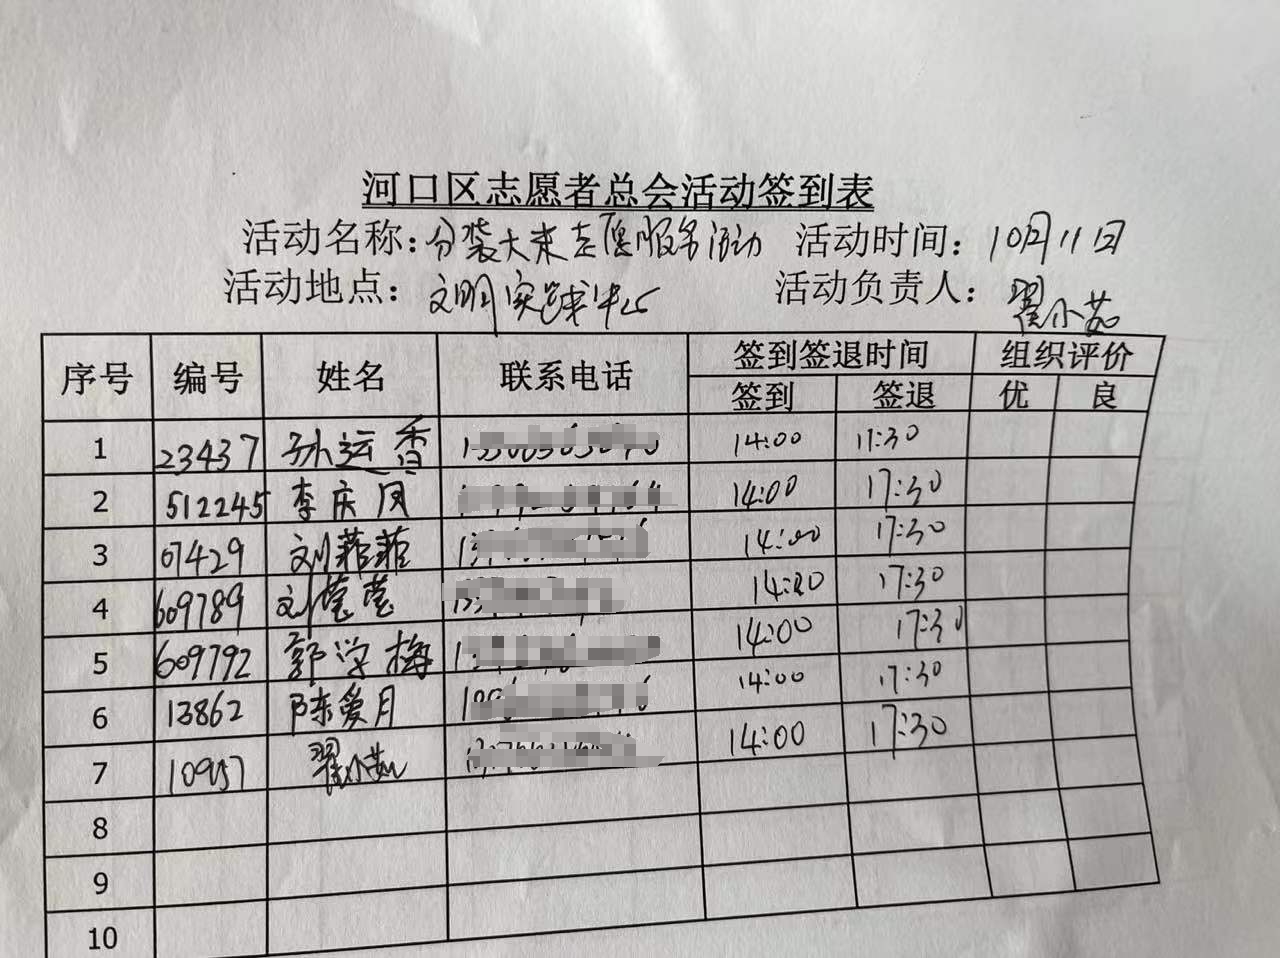 河口区志愿者总会活动签到表
活动名称：分装大米志愿服务活动 活动时间：10月11日
活动地点：文明实践中心 活动负责人：翟小茹
序号 编号 姓名 联系电话 签到签退时间 组织评价
签到 签退 优 良
1 23437 孙运香 14:00 17:30
2 512245 李庆凤 14:00 17:30
3 07429 刘菲菲 14:00 17:30
4 609789 刘莹莹 14:00 17:30
5 609792 郭学梅 14:00 17:30
6 13862 陈爱月 14:00 17:30
7 10957 翟小茹 14:00 17:30
8
9
10